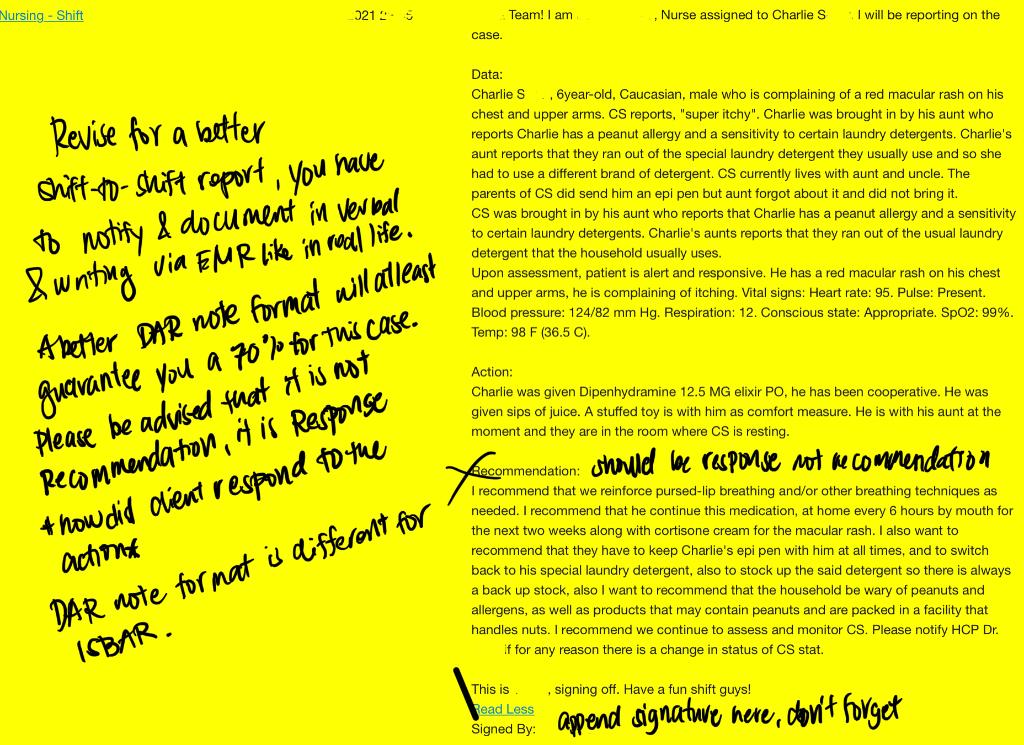 Nursing - Shift
2021
Team! I am , Nurse assigned to Charlie S . I will be reporting on the
case.
Data:
Charlie S , 6year-old, Caucasian, male who is complaining of a red macular rash on his
chest and upper arms. CS reports, "super itchy". Charlie was brought in by his aunt who
reports Charlie has a peanut allergy and a sensitivity to certain laundry detergents. Charlie's
aunt reports that they ran out of the special laundry detergent they usually use and so she
had to use a different brand of detergent. CS currently lives with aunt and uncle. The
parents of CS did send him an epi pen but aunt forgot about it and did not bring it.
CS was brought in by his aunt who reports that Charlie has a peanut allergy and a sensitivity
to certain laundry detergents. Charlie's aunts reports that they ran out of the usual laundry
detergent that the household usually uses.
Upon assessment, patient is alert and responsive. He has a red macular rash on his chest
and upper arms, he is complaining of itching. Vital signs: Heart rate: 95. Pulse: Present.
Blood pressure: 124/82 mm Hg. Respiration: 12. Conscious state: Appropriate. SpO2: 99%.
Temp: 98 F (36.5 C).
Action:
Charlie was given Dipenhydramine 12.5 MG elixir PO, he has been cooperative. He was
given sips of juice. A stuffed toy is with him as comfort measure. He is with his aunt at the
moment and they are in the room where CS is resting.
Recommendation: should be response not recommendation
I recommend that we reinforce pursed-lip breathing and/or other breathing techniques as
needed. I recommend that he continue this medication, at home every 6 hours by mouth for
the next two weeks along with cortisone cream for the macular rash. I also want to
recommend that they have to keep Charlie's epi pen with him at all times, and to switch
back to his special laundry detergent, also to stock up the said detergent so there is always
a back up stock, also I want to recommend that the household be wary of peanuts and
allergens, as well as products that may contain peanuts and are packed in a facility that
handles nuts. I recommend we continue to assess and monitor CS. Please notify HCP Dr.
if for any reason there is a change in status of CS stat.
This is , signing off. Have a fun shift guys!
Read Less
Signed By: append signature here, don't forget
Revise for a better
shift-to-shift report, you have
to notify & document in verbal
& writing via EMR like in real life.
A better DAR note format will atleast
guarantee you a 70% for this case.
Please be advised that it is not
Recommendation, it is Response
+ how did client respond to the
actions
DAR note format is different for
ISBAR.